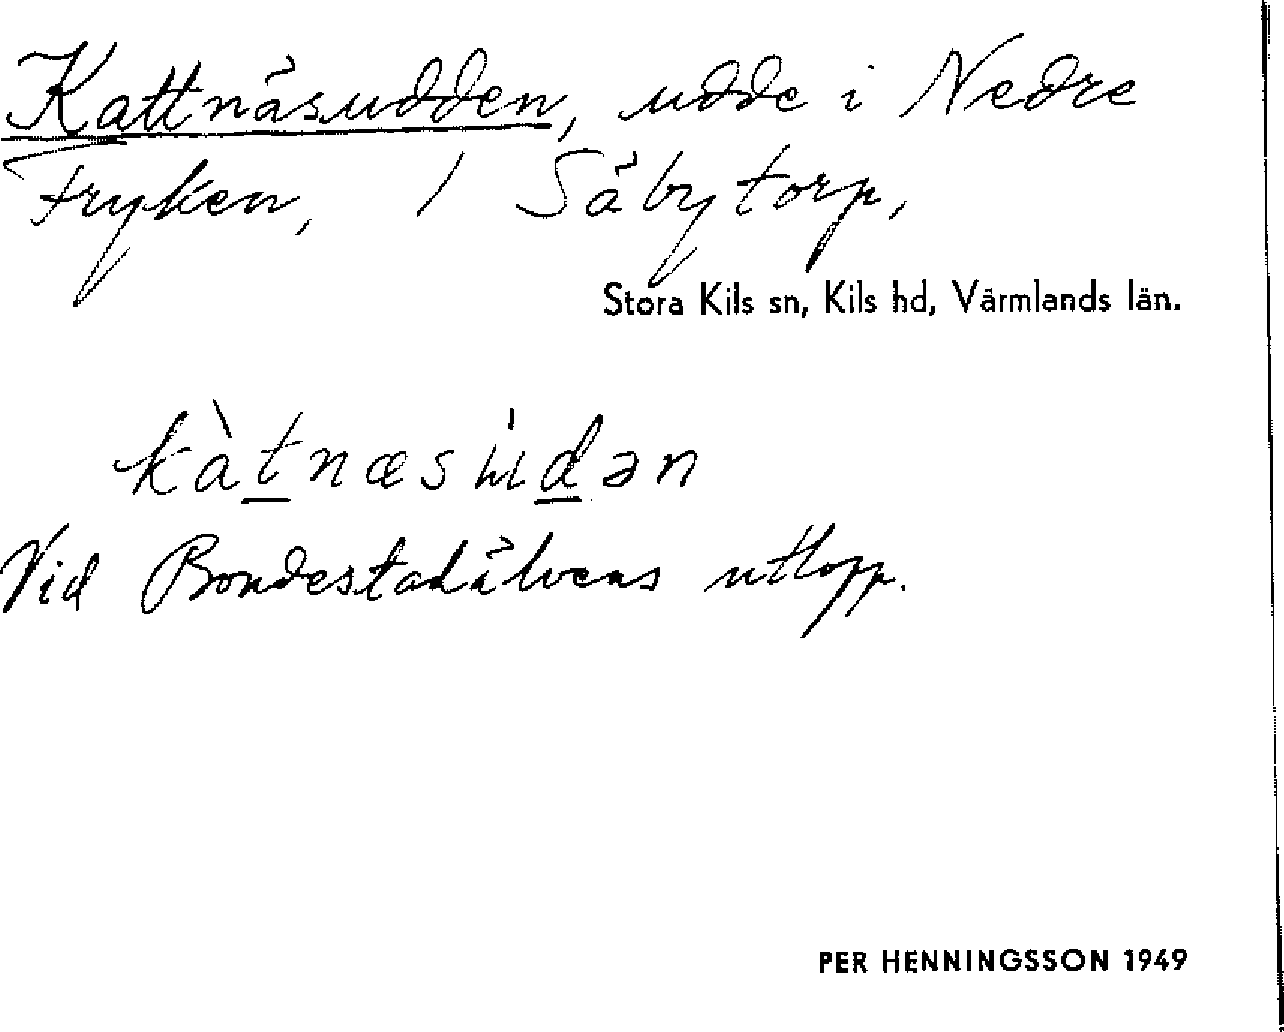 Kattnäsudden, udde i Nedre
Fryken, / Säbytorp,
Stora Kils sn, Kils hd, Värmlands län.
kàt̲næsùd̲ən
Vid Bondestadälvens utlopp.
PER HENNINGSSON 1949